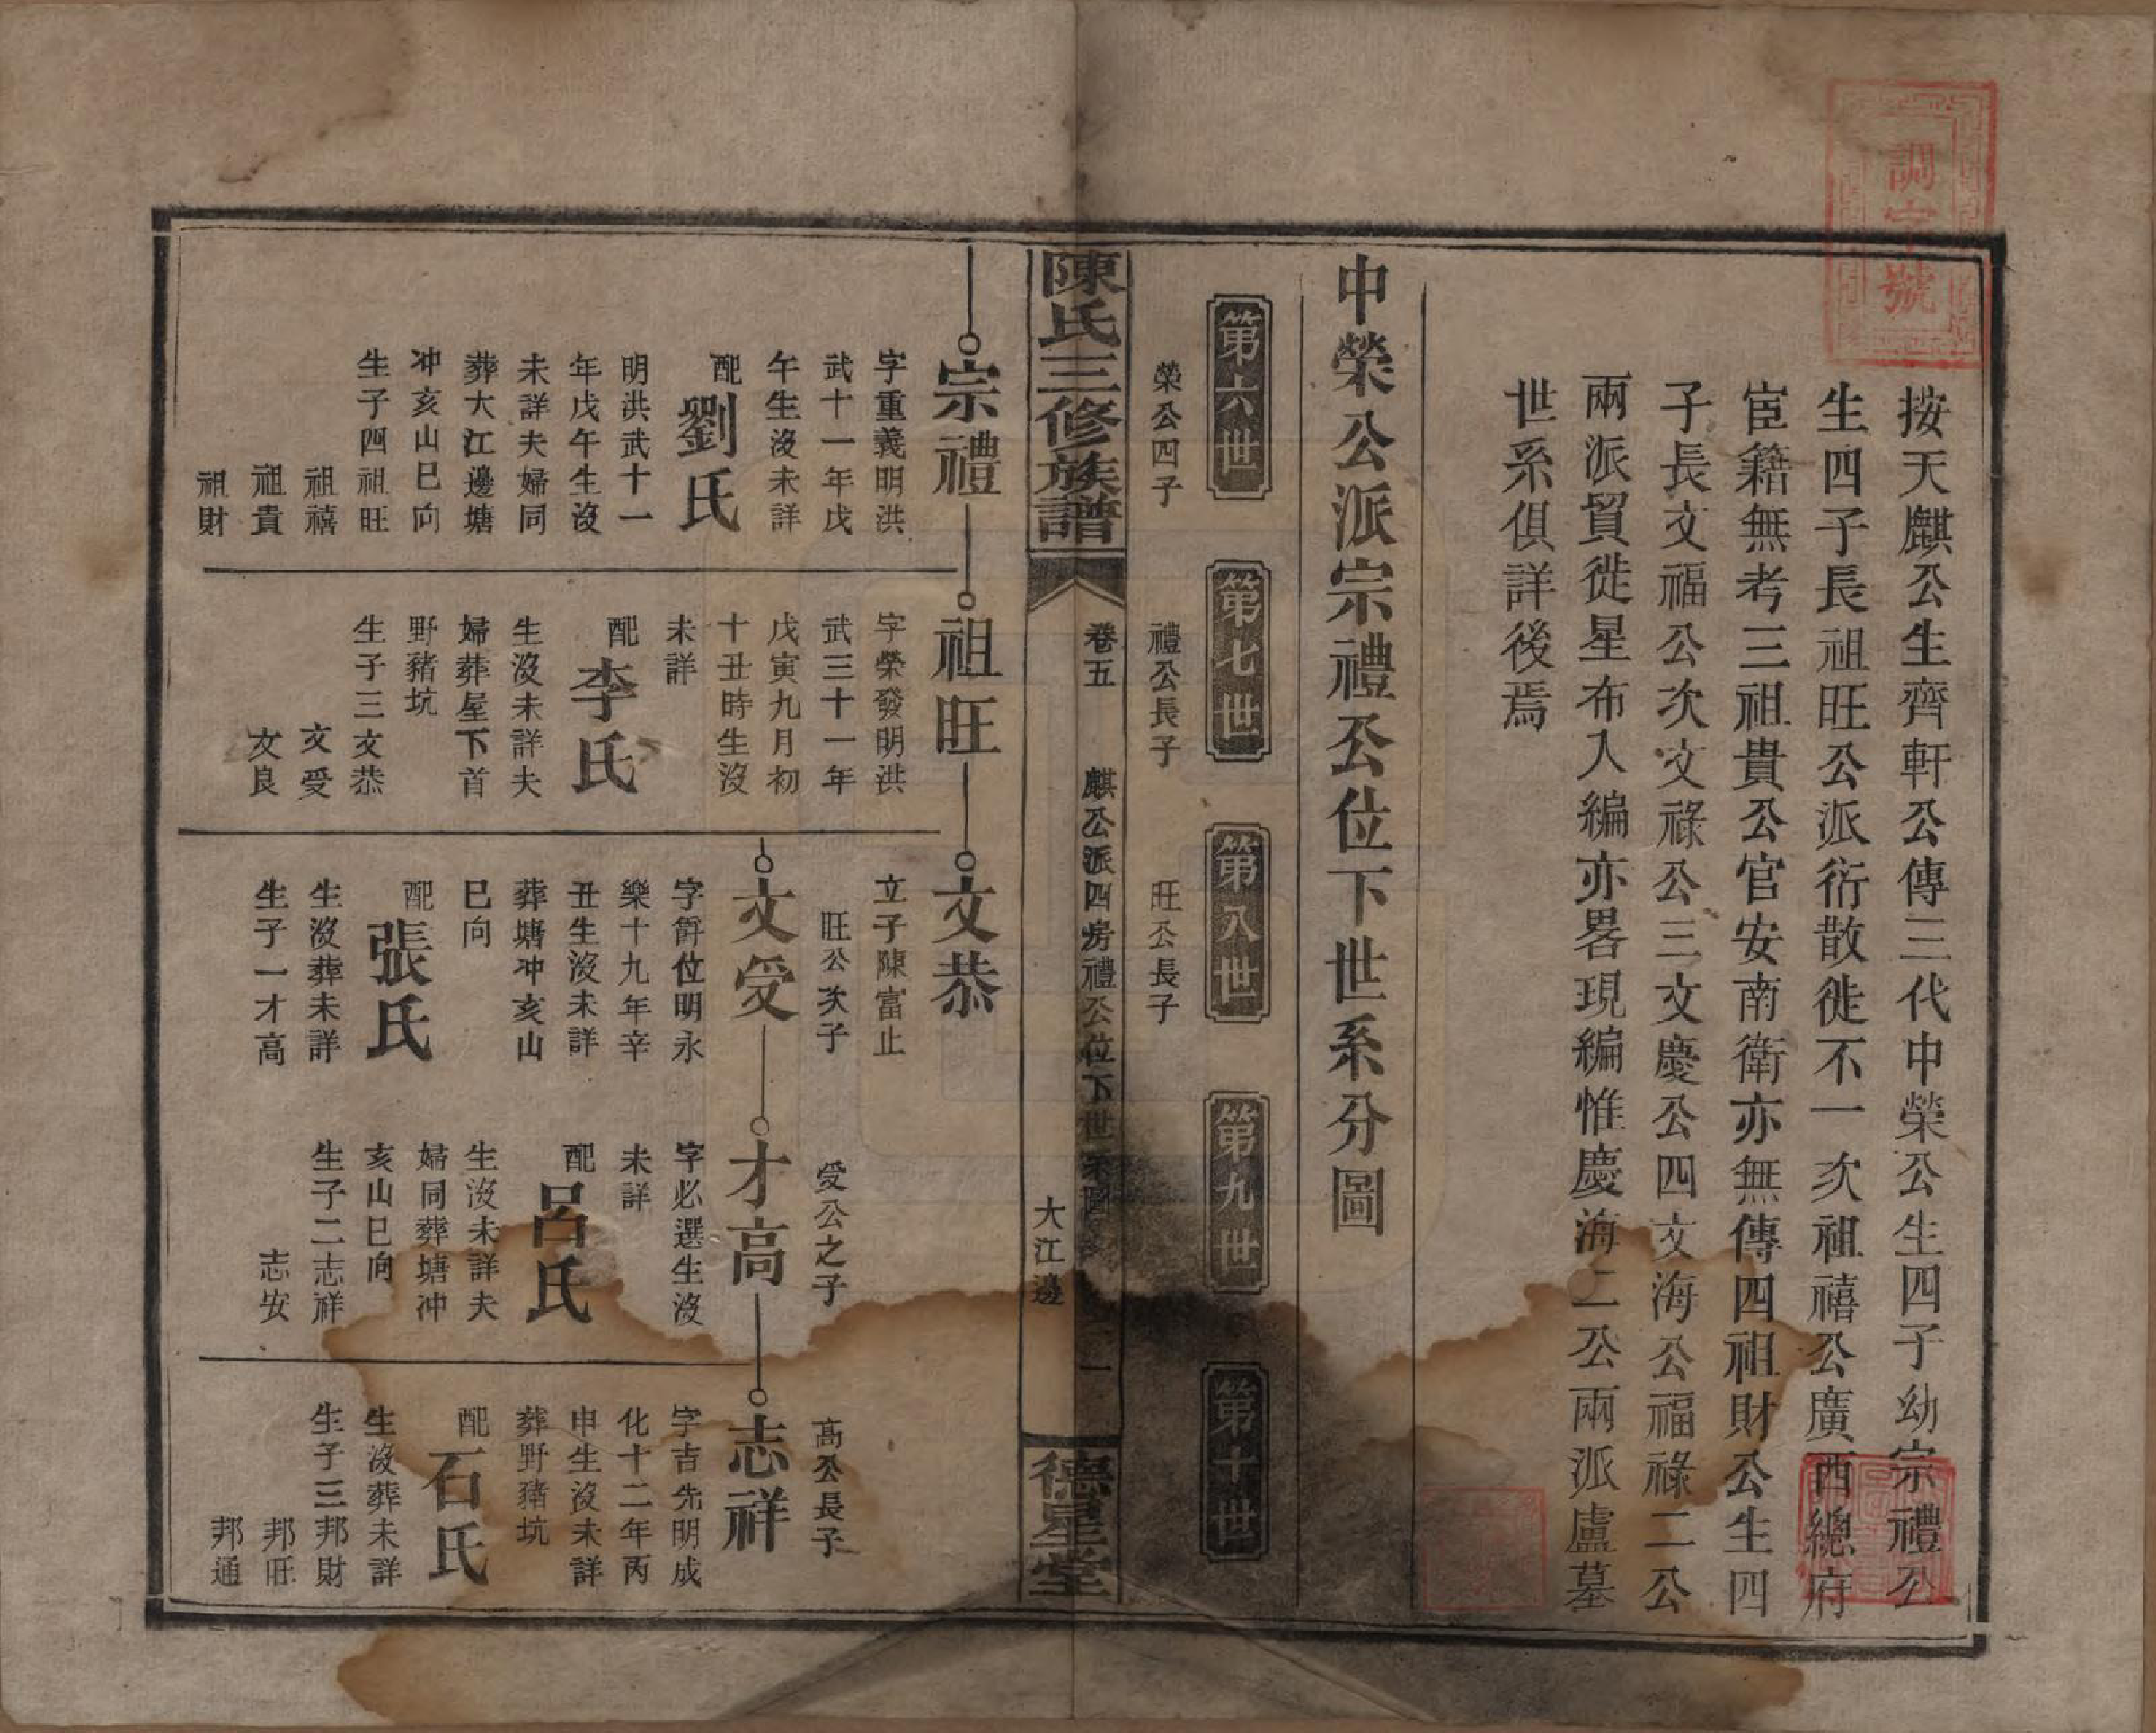 訓字號
按天麒公生齊軒公傳三代中榮公生四子幼宗禮公
生四子長祖旺公派衍散徙不一次祖禧公廣西總府
宦籍無考三祖貴公官安南衛亦無傳四祖財公生四
子長文福公次文祿公三文慶公四文海公福祿二公
兩派貿徙星布入編亦畧現編惟慶海二公兩派廬墓
世系俱詳後焉
中榮公派宗禮公位下世系分圖
第六世
第七世
第八世
第九世
第十世
榮公四子
禮公長子
旺公長子
陳氏三修族譜
卷五
麒公派四房禮公位下世系圖
大江邊
一
德星堂
宗禮
字重義明洪
武十一年戊
午生沒未詳
配劉氏
明洪武十一
年戊午生沒
未詳夫婦同
葬大江邊塘
冲亥山巳向
生子四祖旺
祖禧
祖貴
祖財
祖旺
字榮發明洪
武三十一年
戊寅九月初
十丑時生沒
未詳
配李氏
生沒未詳夫
婦葬星下首
野豬坑
生子三文恭
文受
文良
文恭
立子陳富止
旺公次子
文受
字爵位明永
樂十九年辛
丑生沒未詳
葬塘冲亥山
巳向
配張氏
生沒葬未詳
生子一才高
受公之子
才高
字必選生沒
未詳
配呂氏
生沒未詳夫
婦同葬塘冲
亥山巳向
生子二志祥
志安
高公長子
志祥
字吉先明成
化十二年丙
申生沒未詳
葬野豬坑
配石氏
生沒葬未詳
生子三邦財
邦旺
邦通